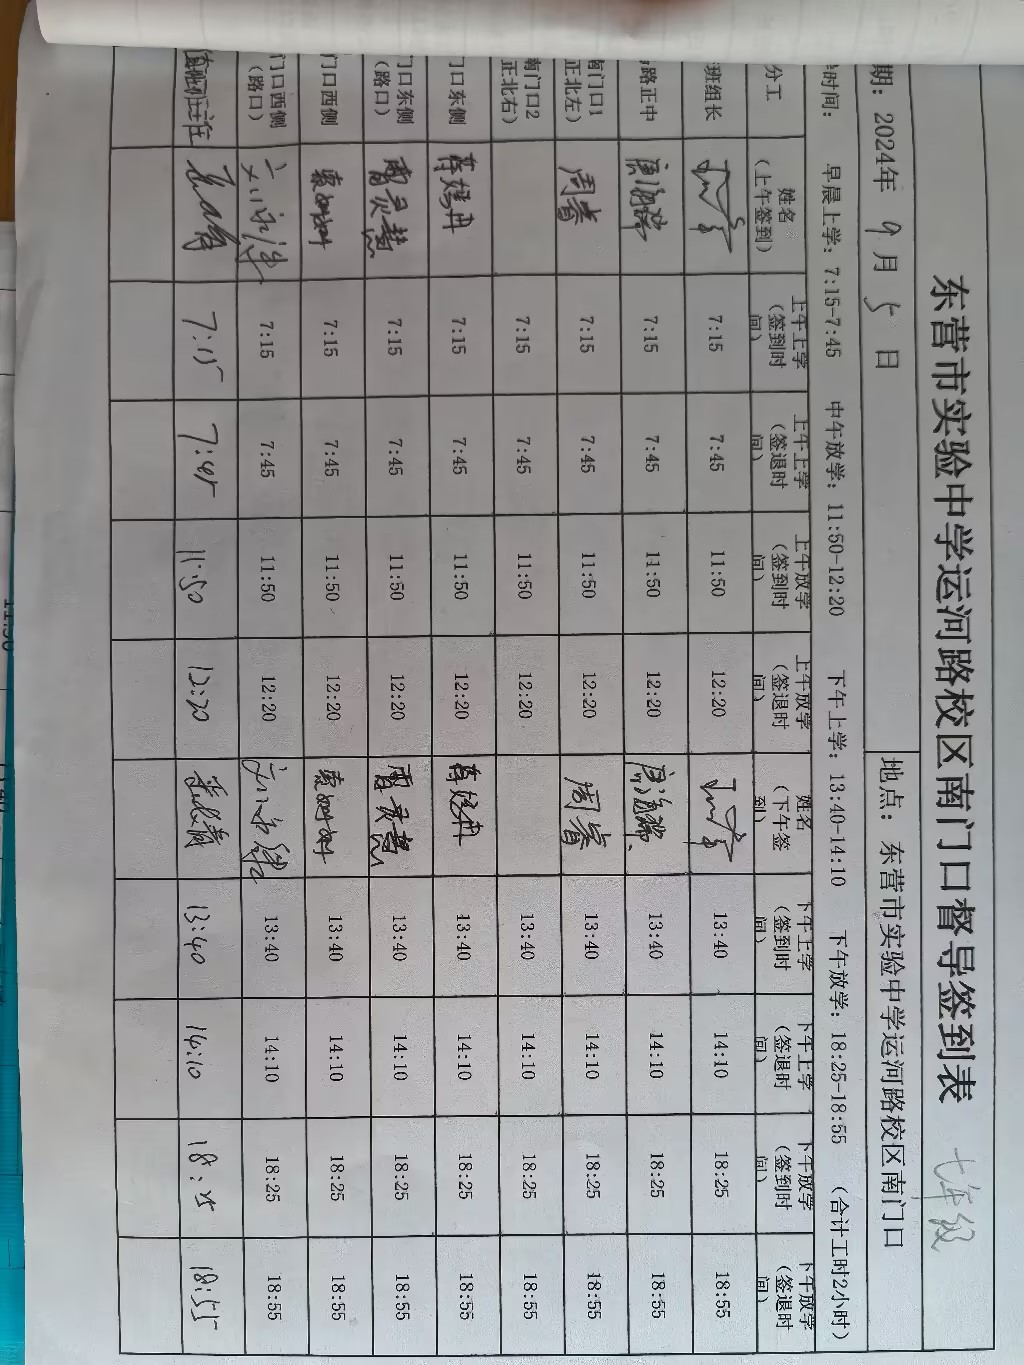 东营市实验中学运河路校区南门口督导签到表 七年级
期：2024年 9 月 5 日 地点：东营市实验中学运河路校区南门口
时间： 早晨上学：7:15-7:45 中午放学：11:50-12:20 下午上学：13:40-14:10 下午放学：18:25-18:55 （合计工时2小时）
分工 姓名（上午签到） 上午上学（签到时间） 上午上学（签退时间） 上午放学（签到时间） 上午放学（签退时间） 姓名（下午签到） 下午上学（签到时间） 下午上学（签退时间） 下午放学（签到时间） 下午放学（签退时间）
班组长 7:15 7:45 11:50 12:20 13:40 14:10 18:25 18:55
路正中 7:15 7:45 11:50 12:20 13:40 14:10 18:25 18:55
南门口1 正北左） 周睿 7:15 7:45 11:50 12:20 周睿 13:40 14:10 18:25 18:55
南门口2 正北右） 7:15 7:45 11:50 12:20 13:40 14:10 18:25 18:55
门口东侧 7:15 7:45 11:50 12:20 13:40 14:10 18:25 18:55
门口东侧（路口） 7:15 7:45 11:50 12:20 13:40 14:10 18:25 18:55
门口西侧 7:15 7:45 11:50 12:20 13:40 14:10 18:25 18:55
门口西侧（路口） 7:15 7:45 11:50 12:20 13:40 14:10 18:25 18:55
7:15 7:45 11:50 12:20 13:40 14:10 18:25 18:55